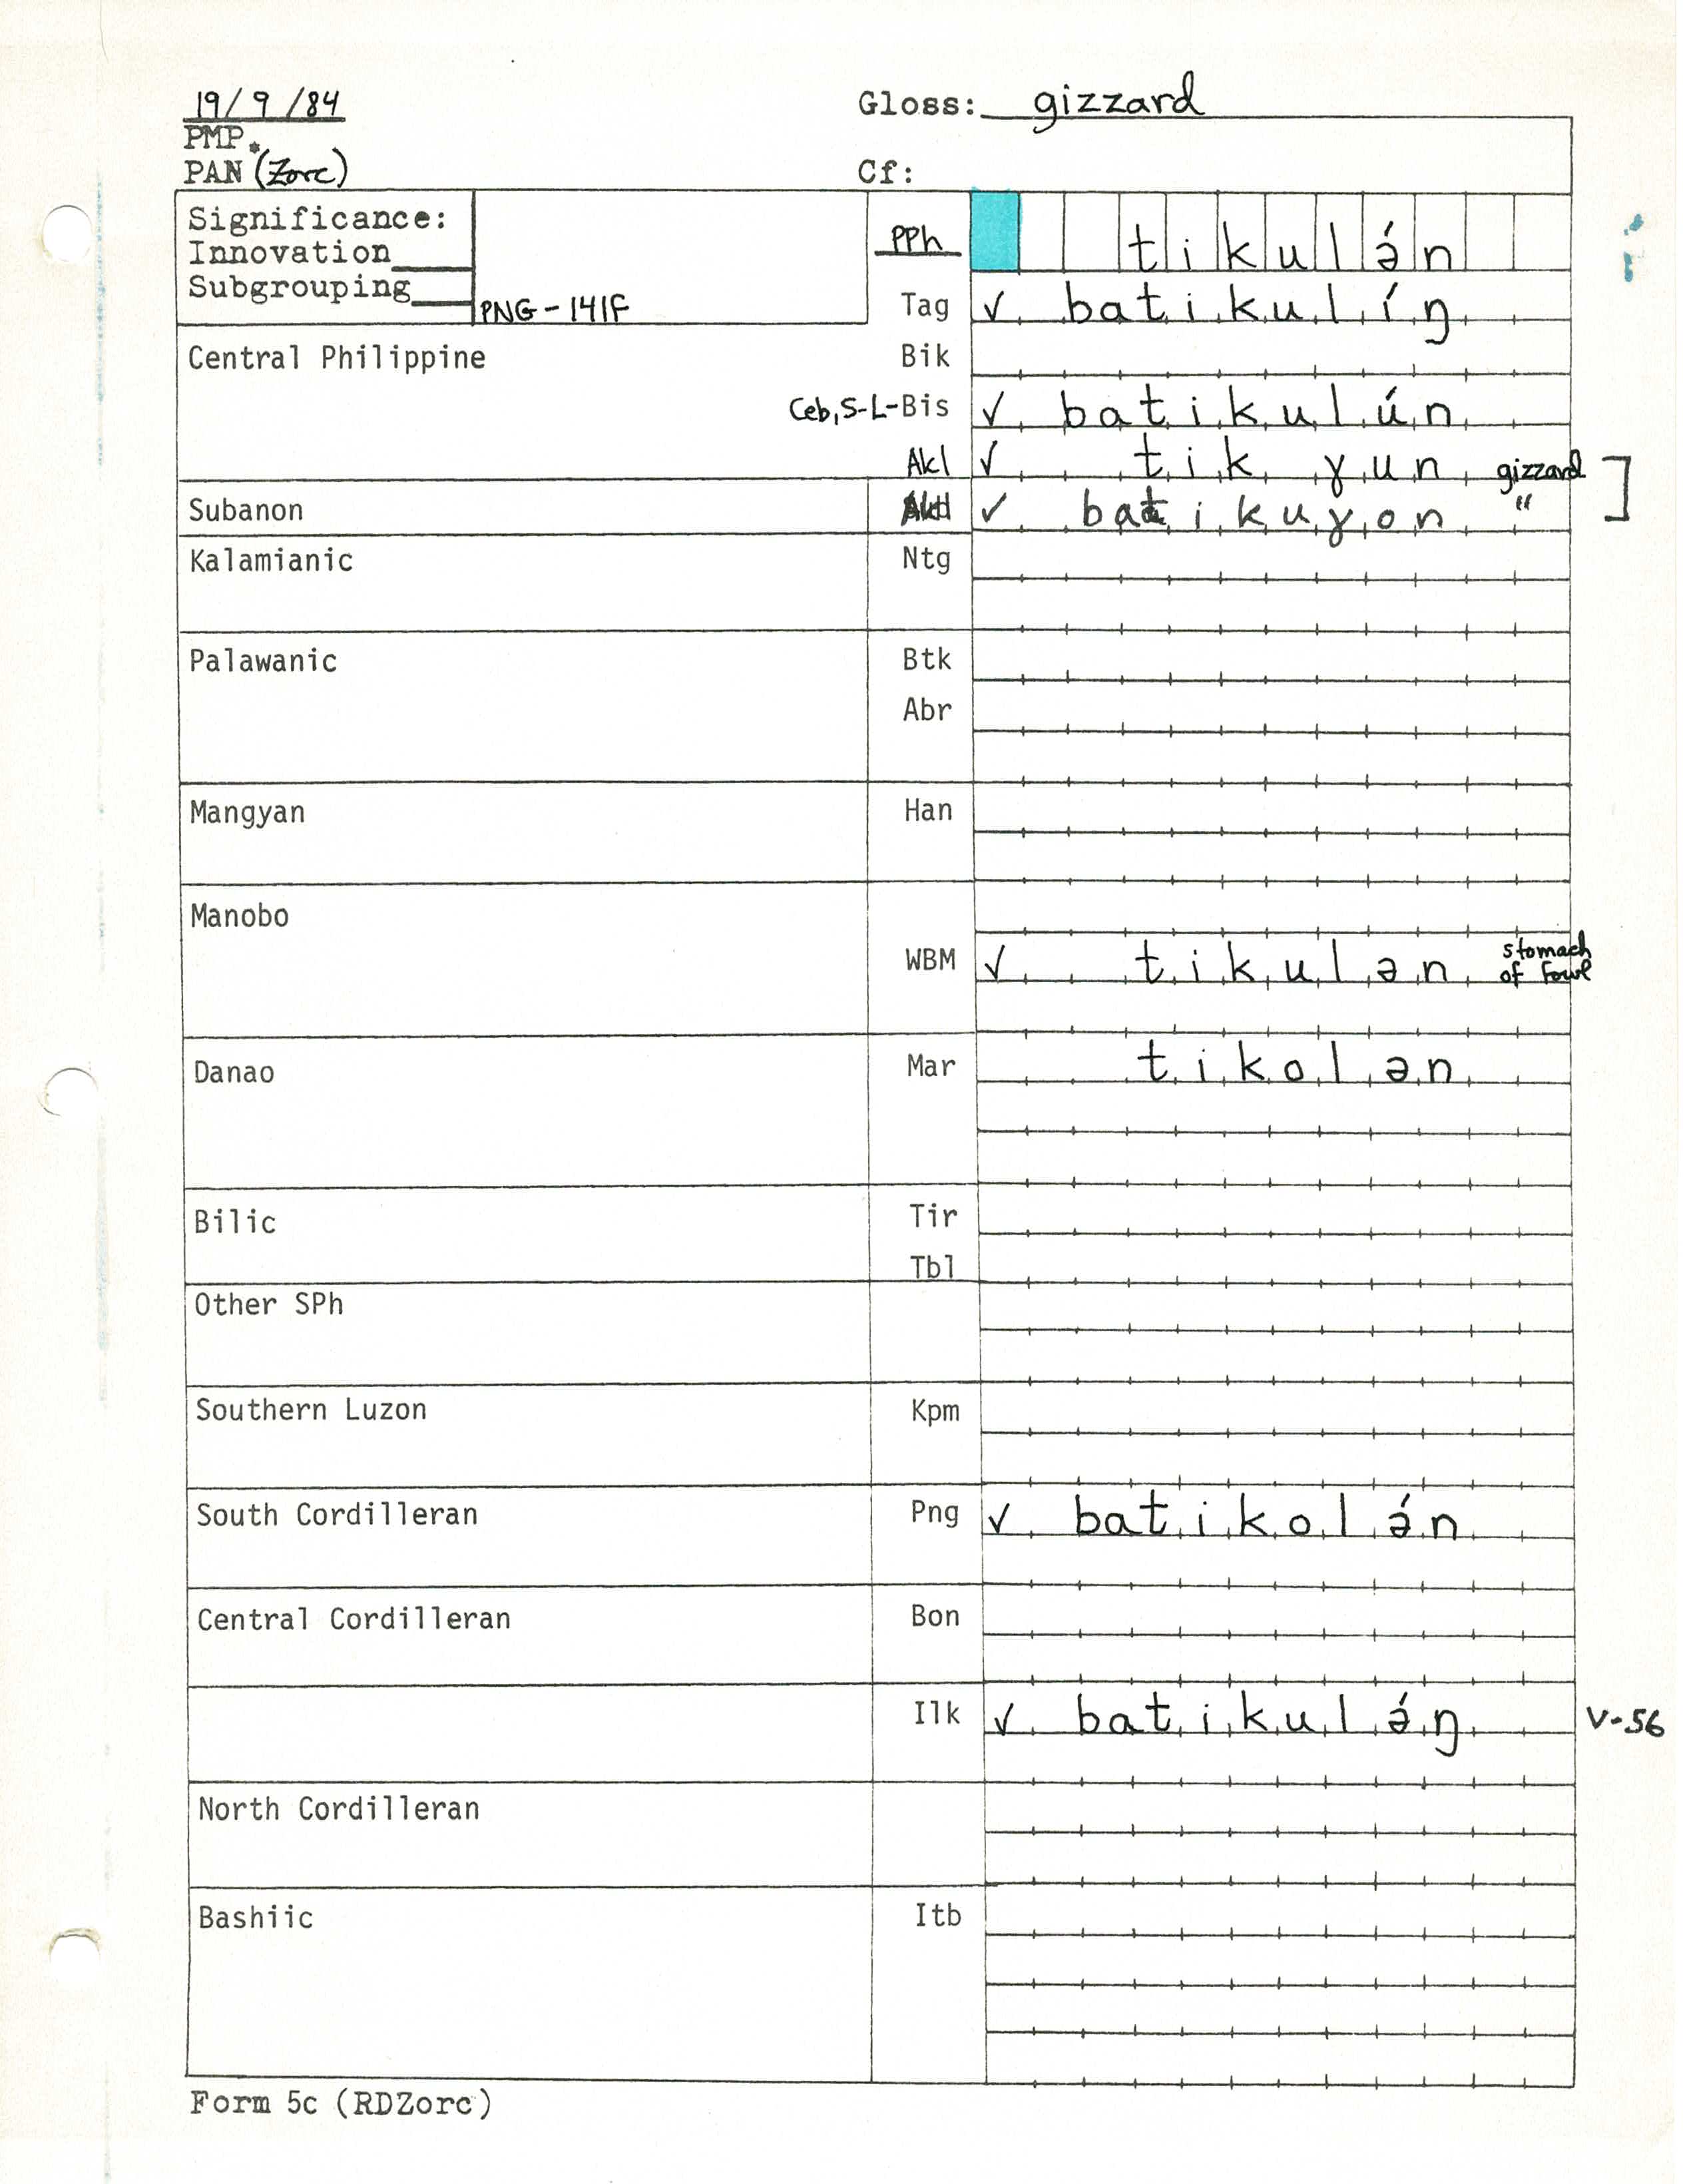 19/9/84 Gloss: gizzard
PMP *
PAN (Zorc) Cf:
Significance:
Innovation
Subgrouping
PNG-141F
PPh tikulə́n
Tag ✓ batikulíŋ
Central Philippine Bik
Ceb, S-L-Bis ✓ batikulún
Akl ✓ tik ɣun gizzard
Subanon Akl ✓ batikuɣon "
Kalamianic Ntg
Palawanic Btk
Abr
Mangyan Han
Manobo
WBM ✓ tikulən stomach of fowl
Danao Mar tikolən
Bilic Tir
Tbl
Other SPh
Southern Luzon Kpm
South Cordilleran Png ✓ batikolə́n
Central Cordilleran Bon
Ilk ✓ batikulə́ŋ V-56
North Cordilleran
Bashiic Itb
Form 5c (RDZorc)